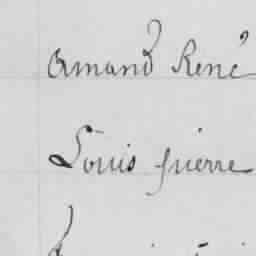 Armand René
Louis pierre